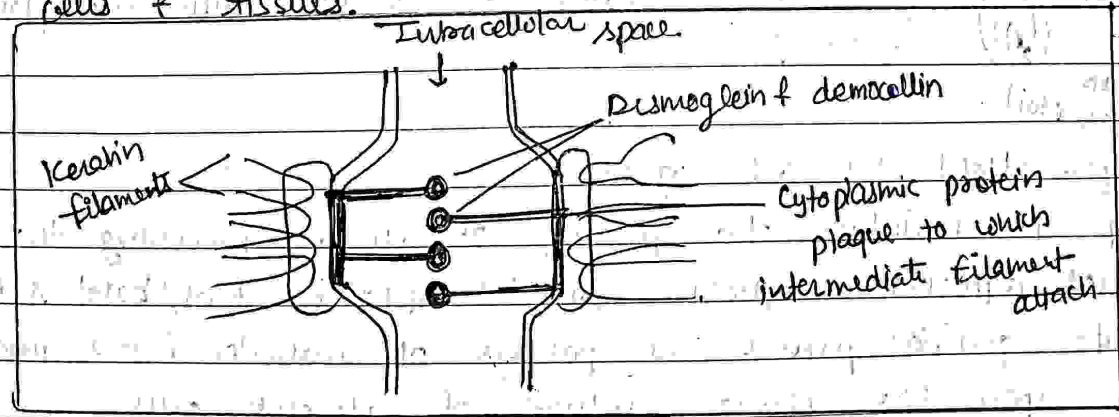 cells & tissues.
Intracellular space
Dismoglein & democollin
Keratin
filaments
Cytoplasmic protein
plaque to which
intermediate filament
attach